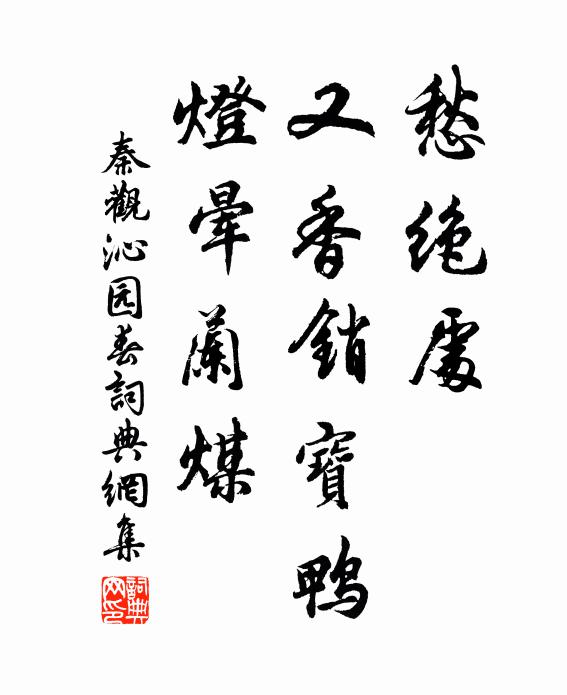 愁絶處
又香銷寶鴨
燈暈蘭煤
秦觀沁园春詞典網集
詞典网印